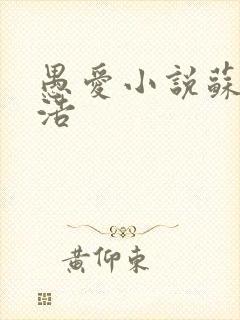 愚愛小說蘇
活
黃仰東